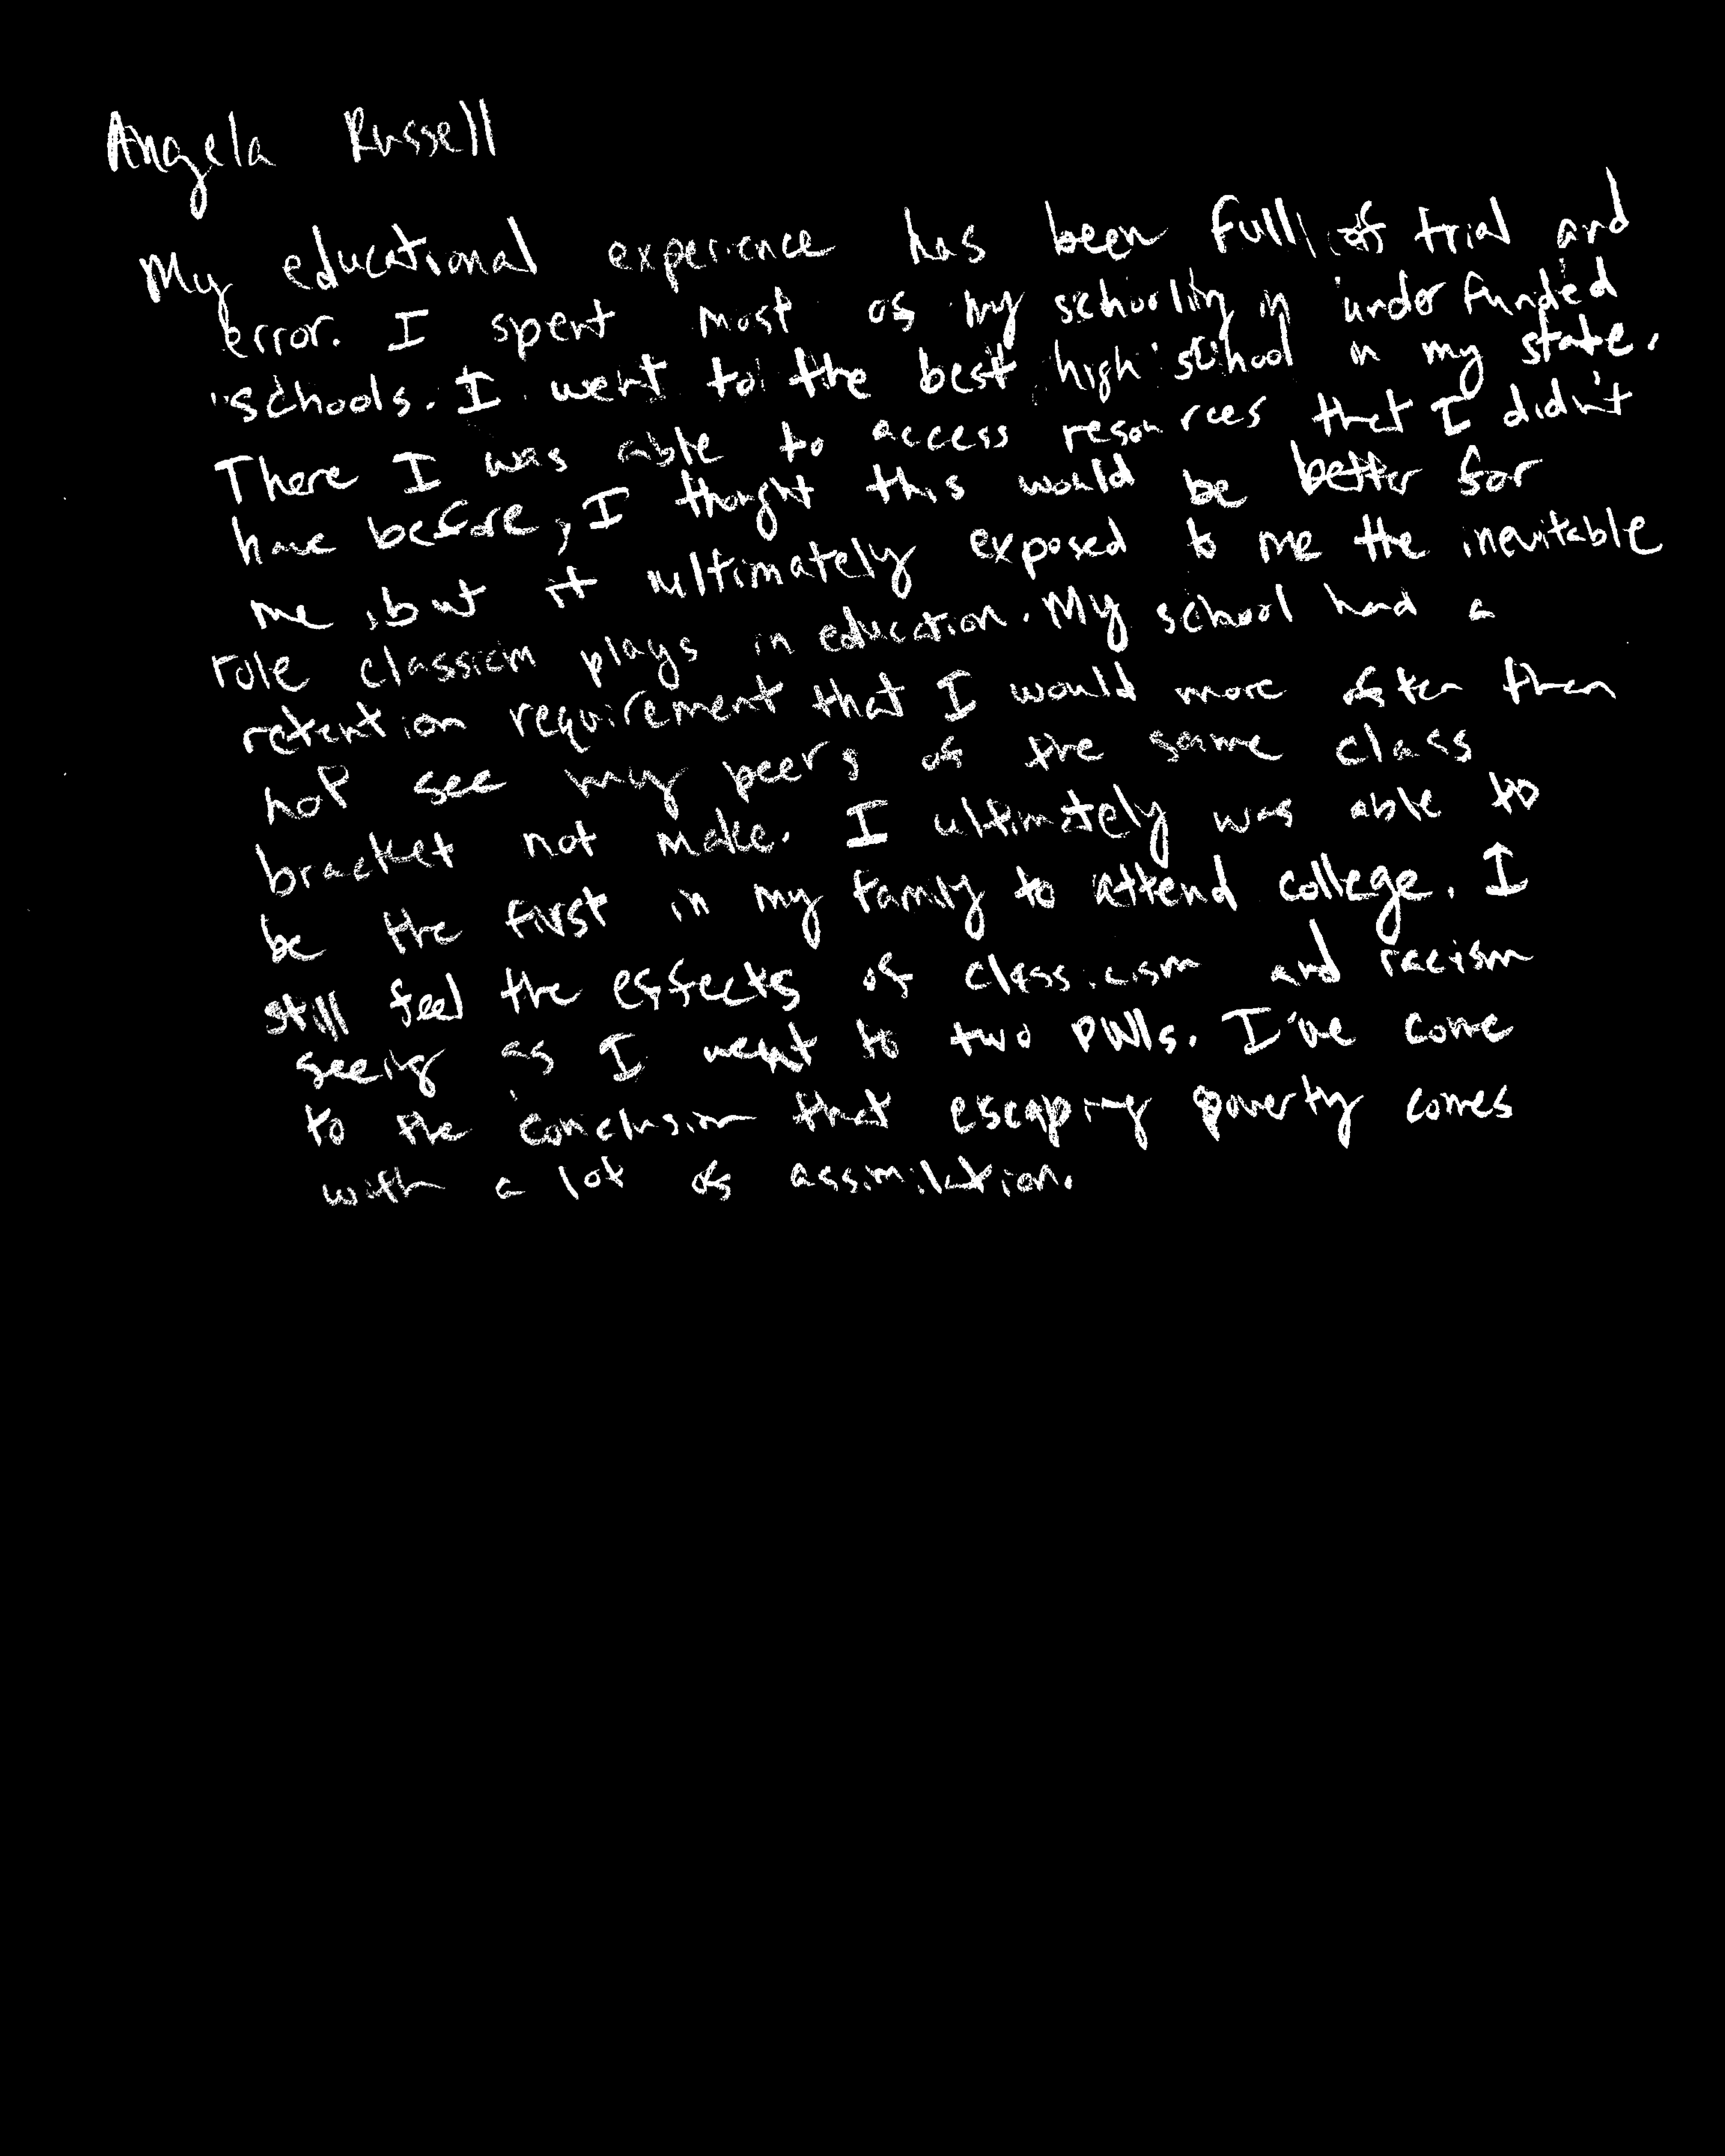 Angela Russell
My educational experience has been full of trial and
error. I spent most of my schooling in underfunded
schools. I went to the best high school in my state.
There I was able to access resources that I didn't
have before, I thought this would be better for
me, but it ultimately exposed to me the inevitable
role classicm plays in education. My school had a
retention requirement that I would more often then
not see my peers of the same class
bracket not make. I ultimately was able to
be the first in my family to attend college. I
still feel the effects of classicism and racism
seeing as I went to two PWIs. I've come
to the conclusion that escaping poverty comes
with a lot of assimilation.